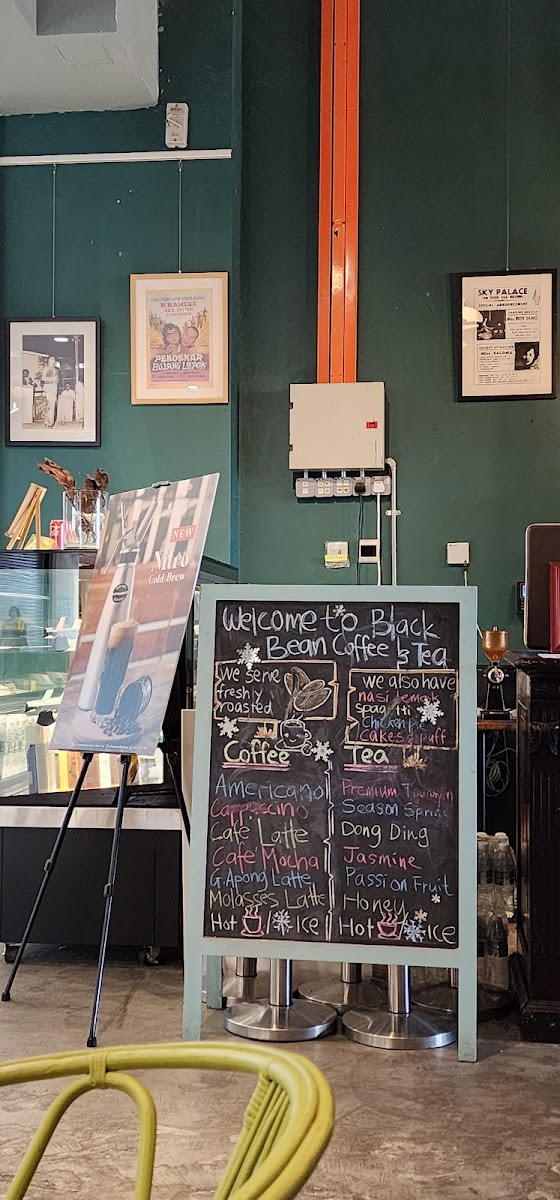 P.RAMLEE
PENDEKAR
BUJANG LAPOK
SKY PALACE
SPECIAL ANNOUNCEMENT
NEW
Nitro
Cold Brew
Welcome to Black
Bean Coffee & Tea
we serve
freshly
roasted
Coffee
Americano
Cappuccino
Cafe Latte
Cafe' Mocha
G.Apong Latte
Molasses Latte
Hot / ICE
we also have
nasi lemak
spagetti
Chicken pie
Cakes & puff
Tea
Premium
Season Spring
Dong Ding
Jasmine
Passion Fruit
Honey
Hot / ICE